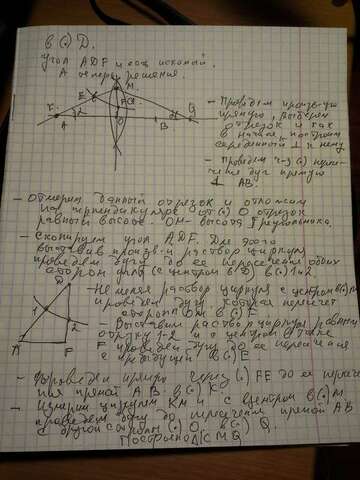 в (·) D.
угол ADF и есть искомый.
А теперь решение.
M
E
F
K
A
2
O
B
Q
- Проведем произв-ую
прямую, выберем
отрезок и как
в начале, построим
серединный ⊥ к нему
- Проведем ч-з (·)
дуг прямую
⊥ AB.
- Отмерим данный отрезок и отложим
на перпендикуляре от (·) O отрезок
равный высоте. OM - высота треугольника.
- Скопируем угол ADF. Для этого
выставив произв-й раствор циркуля
проведем дугу до ее пересечения обоих
сторон угла с центром в (·) D в (·) 1 и 2.
D
1
2
F
- Не меняя раствор циркуля с центром в (·) M
проведем дугу, которая пересечет
OM в F
- Выставим раствор циркуля равный
отрезку 1-2 и с центром в точке
F проведем дугу до ее пересечения
с предыдущей в (·) E
- Проведем прямую через (·) E до ее пересече
ния прямой AB в (·) K.
- Измерим циркулем KM и с центром в (·) M
проведем дугу до пересечения прямой AB
с другой стороны (·) O, в (·) Q.
Построили KMQ